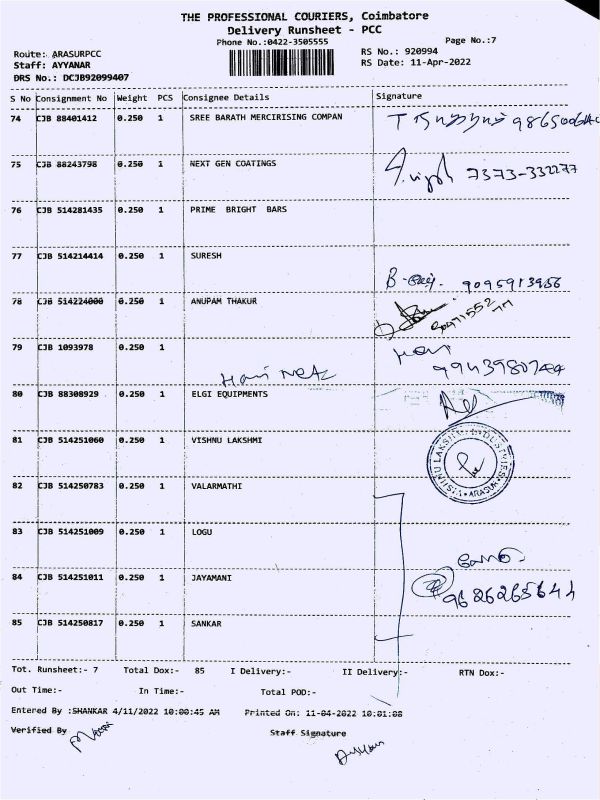 THE PROFESSIONAL COURIERS, Coimbatore
Delivery Runsheet - PCC
Phone No.:0422-3505555
Page No.:7
Route: ARASURPCC
RS No.: 920994
Staff: AYYANAR
RS Date: 11-Apr-2022
DRS No.: DCJB92099407
S No Consignment No Weight PCS Consignee Details Signature
74 CJB 88401412 0.250 1 SREE BARATH MERCIRISING COMPAN
75 CJB 88243798 0.250 1 NEXT GEN COATINGS 7373-332277
76 CJB 514281435 0.250 1 PRIME BRIGHT BARS
77 CJB 514214414 0.250 1 SURESH 9095913956
78 CJB 514224000 0.250 1 ANUPAM THAKUR
79 CJB 1093978 0.250 1
80 CJB 88308929 0.250 1 ELGI EQUIPMENTS
81 CJB 514251060 0.250 1 VISHNU LAKSHMI
VISHNU LAKSHMI INDUSTRIES
ARASUR
82 CJB 514250783 0.250 1 VALARMATHI
83 CJB 514251009 0.250 1 LOGU
84 CJB 514251011 0.250 1 JAYAMANI
85 CJB 514250817 0.250 1 SANKAR
Tot. Runsheet:- 7 Total Dox:- 85 I Delivery:- II Delivery:- RTN Dox:-
Out Time:- In Time:- Total POD:-
Entered By :SHANKAR 4/11/2022 10:00:45 AM Printed On: 11-04-2022 10:01:08
Verified By Staff Signature